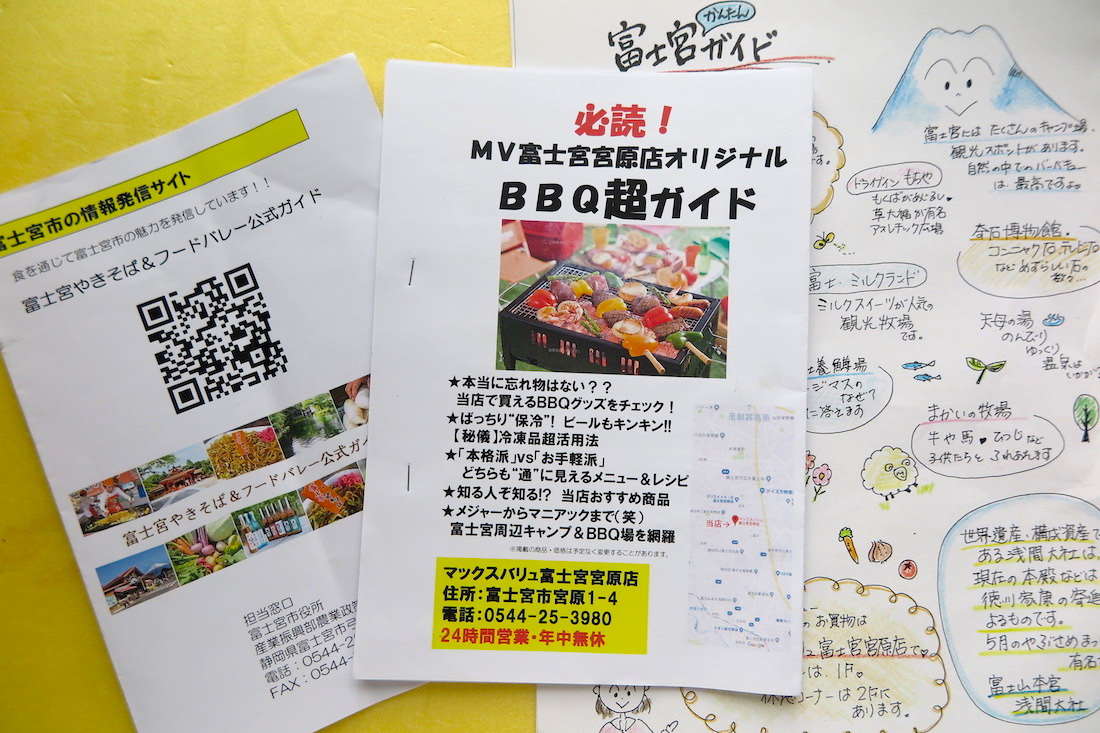 富士宮市の情報発信サイト
食を通じて富士宮市の魅力を発信しています！！
富士宮やきそば＆フードバレー公式ガイド
富士宮やきそば＆フードバレー公式ガイ
担当窓口
富士宮市役所
産業振興部農業政
静岡県富士宮市弓
電話：0544-2
FAX：0544-
必読！
ＭＶ富士宮宮原店オリジナル
ＢＢＱ超ガイド
★本当に忘れ物はない？？
当店で買えるBBQグッズをチェック！
★ばっちり“保冷”！ビールもキンキン!!
【秘儀】冷凍品超活用法
★「本格派」vs「お手軽派」
どちらも“通”に見えるメニュー＆レシピ
★知る人ぞ知る!? 当店おすすめ商品
★メジャーからマニアックまで(笑)
富士宮周辺キャンプ＆BBQ場を網羅
※掲載の商品・価格は予定なく変更することがあります。
当店→
マックスバリュ富士宮宮原店
住所：富士宮市宮原1-4
電話：0544-25-3980
24時間営業・年中無休
富士宮かんたんガイド
富士宮には たくさんのキャンプ場、
観光スポットがあります。
自然の中でのバーベキュー
は 最高ですよ
ドライブイン もちや
もくばがめじるし
草大福が有名
アスレチック広場
奇石博物館。
コンニャク石、テレビ石
などめずらしい石の
数々…
富士ミルクランド
ミルクスイーツが人気の
観光牧場
です。
天母の湯
のんびり
ゆっくり
温泉は
いかが？
養鱒場
ジマスの
なぜ？
に答えます
まかいの牧場
牛や馬♥ひつじなど
子供たちと ふれあえます
世界遺産、構成資産で
ある浅間大社は、
現在の本殿などは
徳川家康の寄進
よるものです。
5月のやぶさめまつ
有名
富士山本宮
浅間大社
お買物は
富士宮宮原店で♥
は 1F。
コーナーは2Fに
あります。